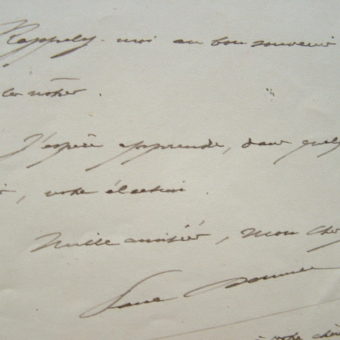 Rappelez-moi au bon souvenir
les nôtres.
J'espère apprendre, dans quelq
votre élection.
Mille amitiés, mon che
Paul Doumer
votre ch